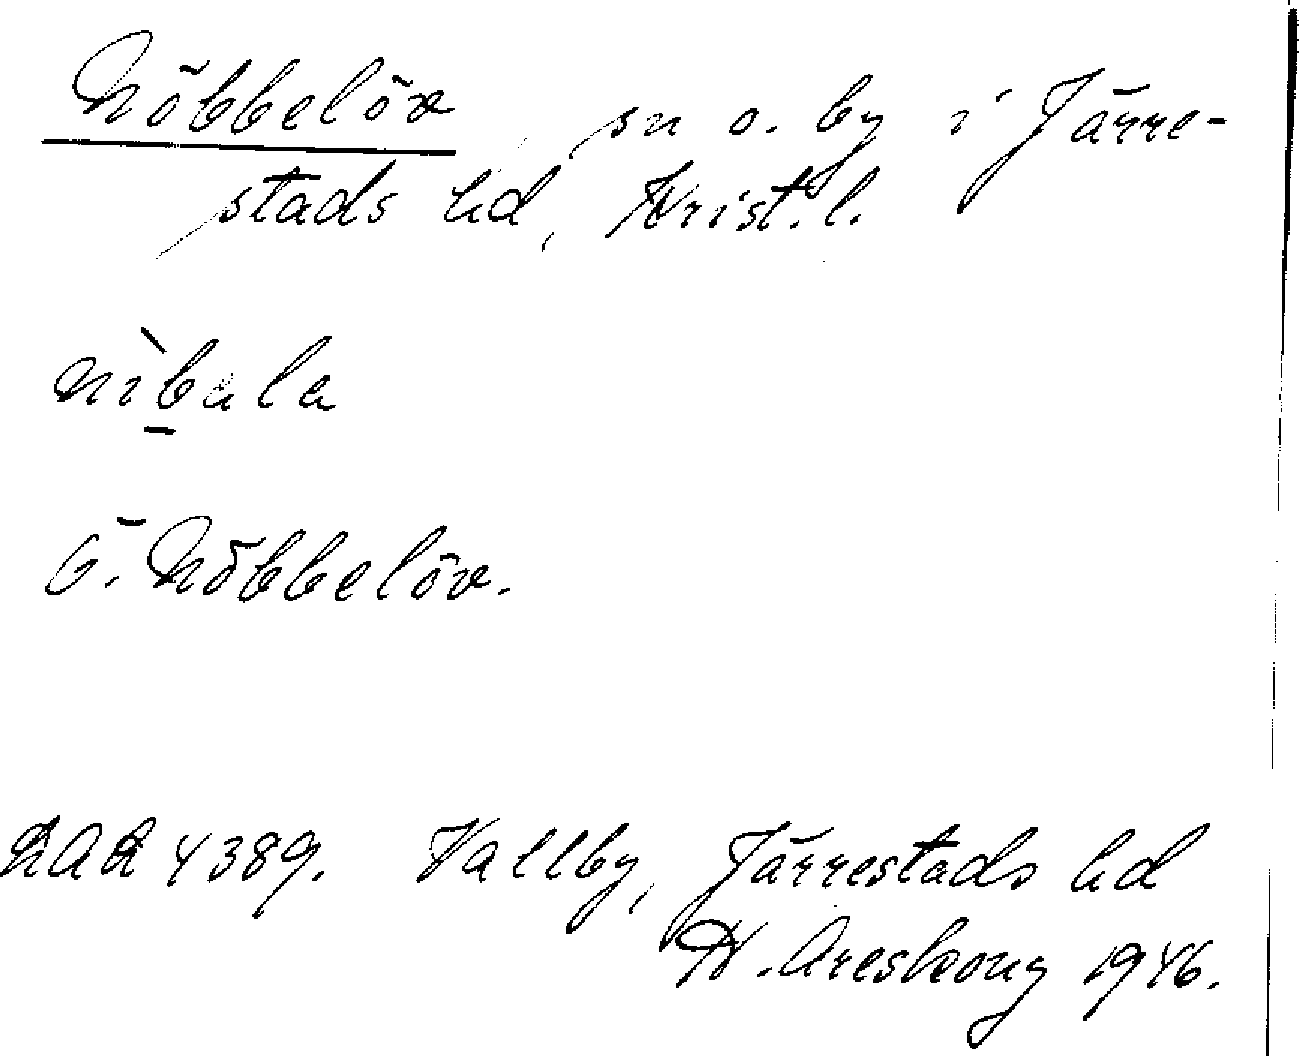 Nöbbelöv, sn o. by i Järre-
stads hd, Krist. l.
nìbala
Ö. Nöbbelöv.
4389. Vallby, Järrestads hd
H. Areskoug 1946.